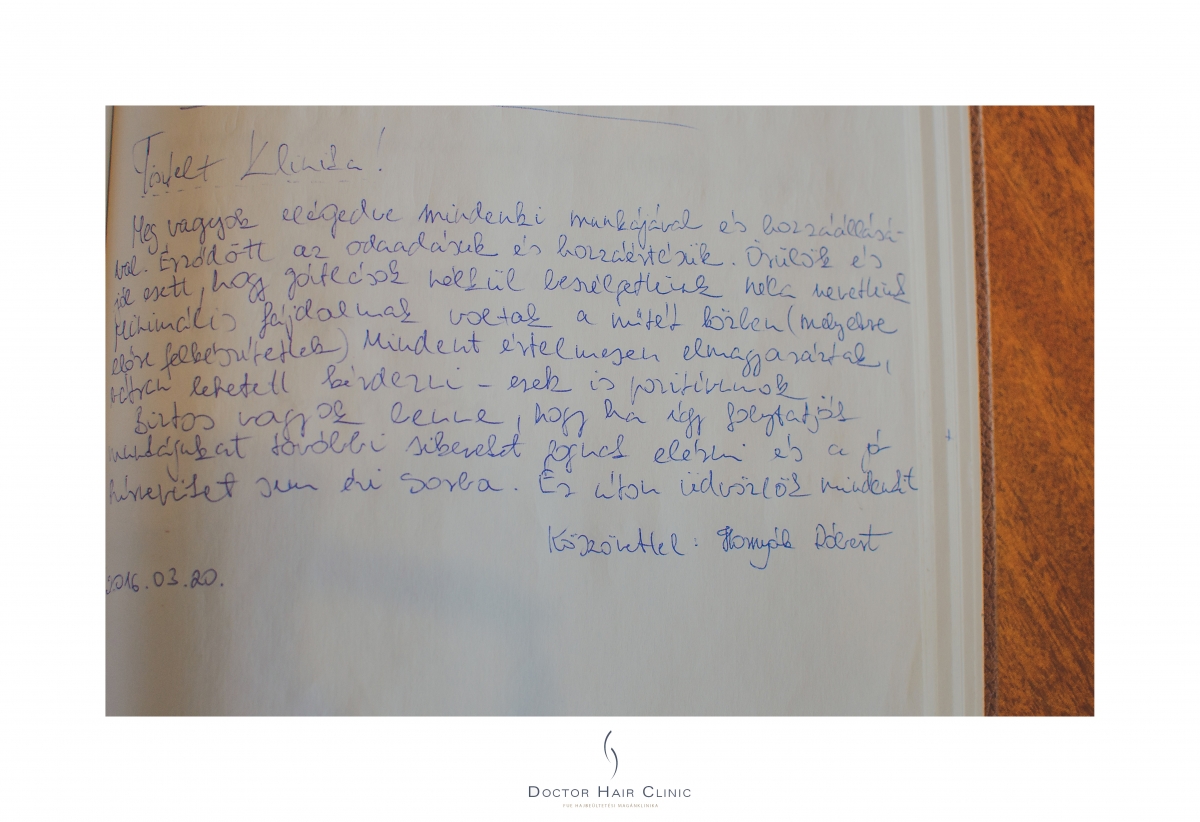 Tisztelt Klinika!
Meg vagyok elégedve mindenki munkájával és hozzáállásá-
val. Érződött az odaadásuk és hozzáértésük. Örülök és
jól esett, hogy gátlások nélkül beszélgettünk néha nevettünk
Minimális fájdalmak voltak a műtét közben (melyekre
előre felkészítettek) Mindent értelmesen elmagyaráztak,
bátran lehetett kérdezni - ezek is pozitívumok
Biztos vagyok benne, hogy ha így folytatják
munkájukat további sikereket fognak elérni és a jó
hírnevüket sem éri csorba. Ez úton üdvözlök mindenkit
Köszönettel: Hornyák Róbert
2016.03.20.
DOCTOR HAIR CLINIC
FUE HAJBEÜLTETÉSI MAGÁNKLINIKA